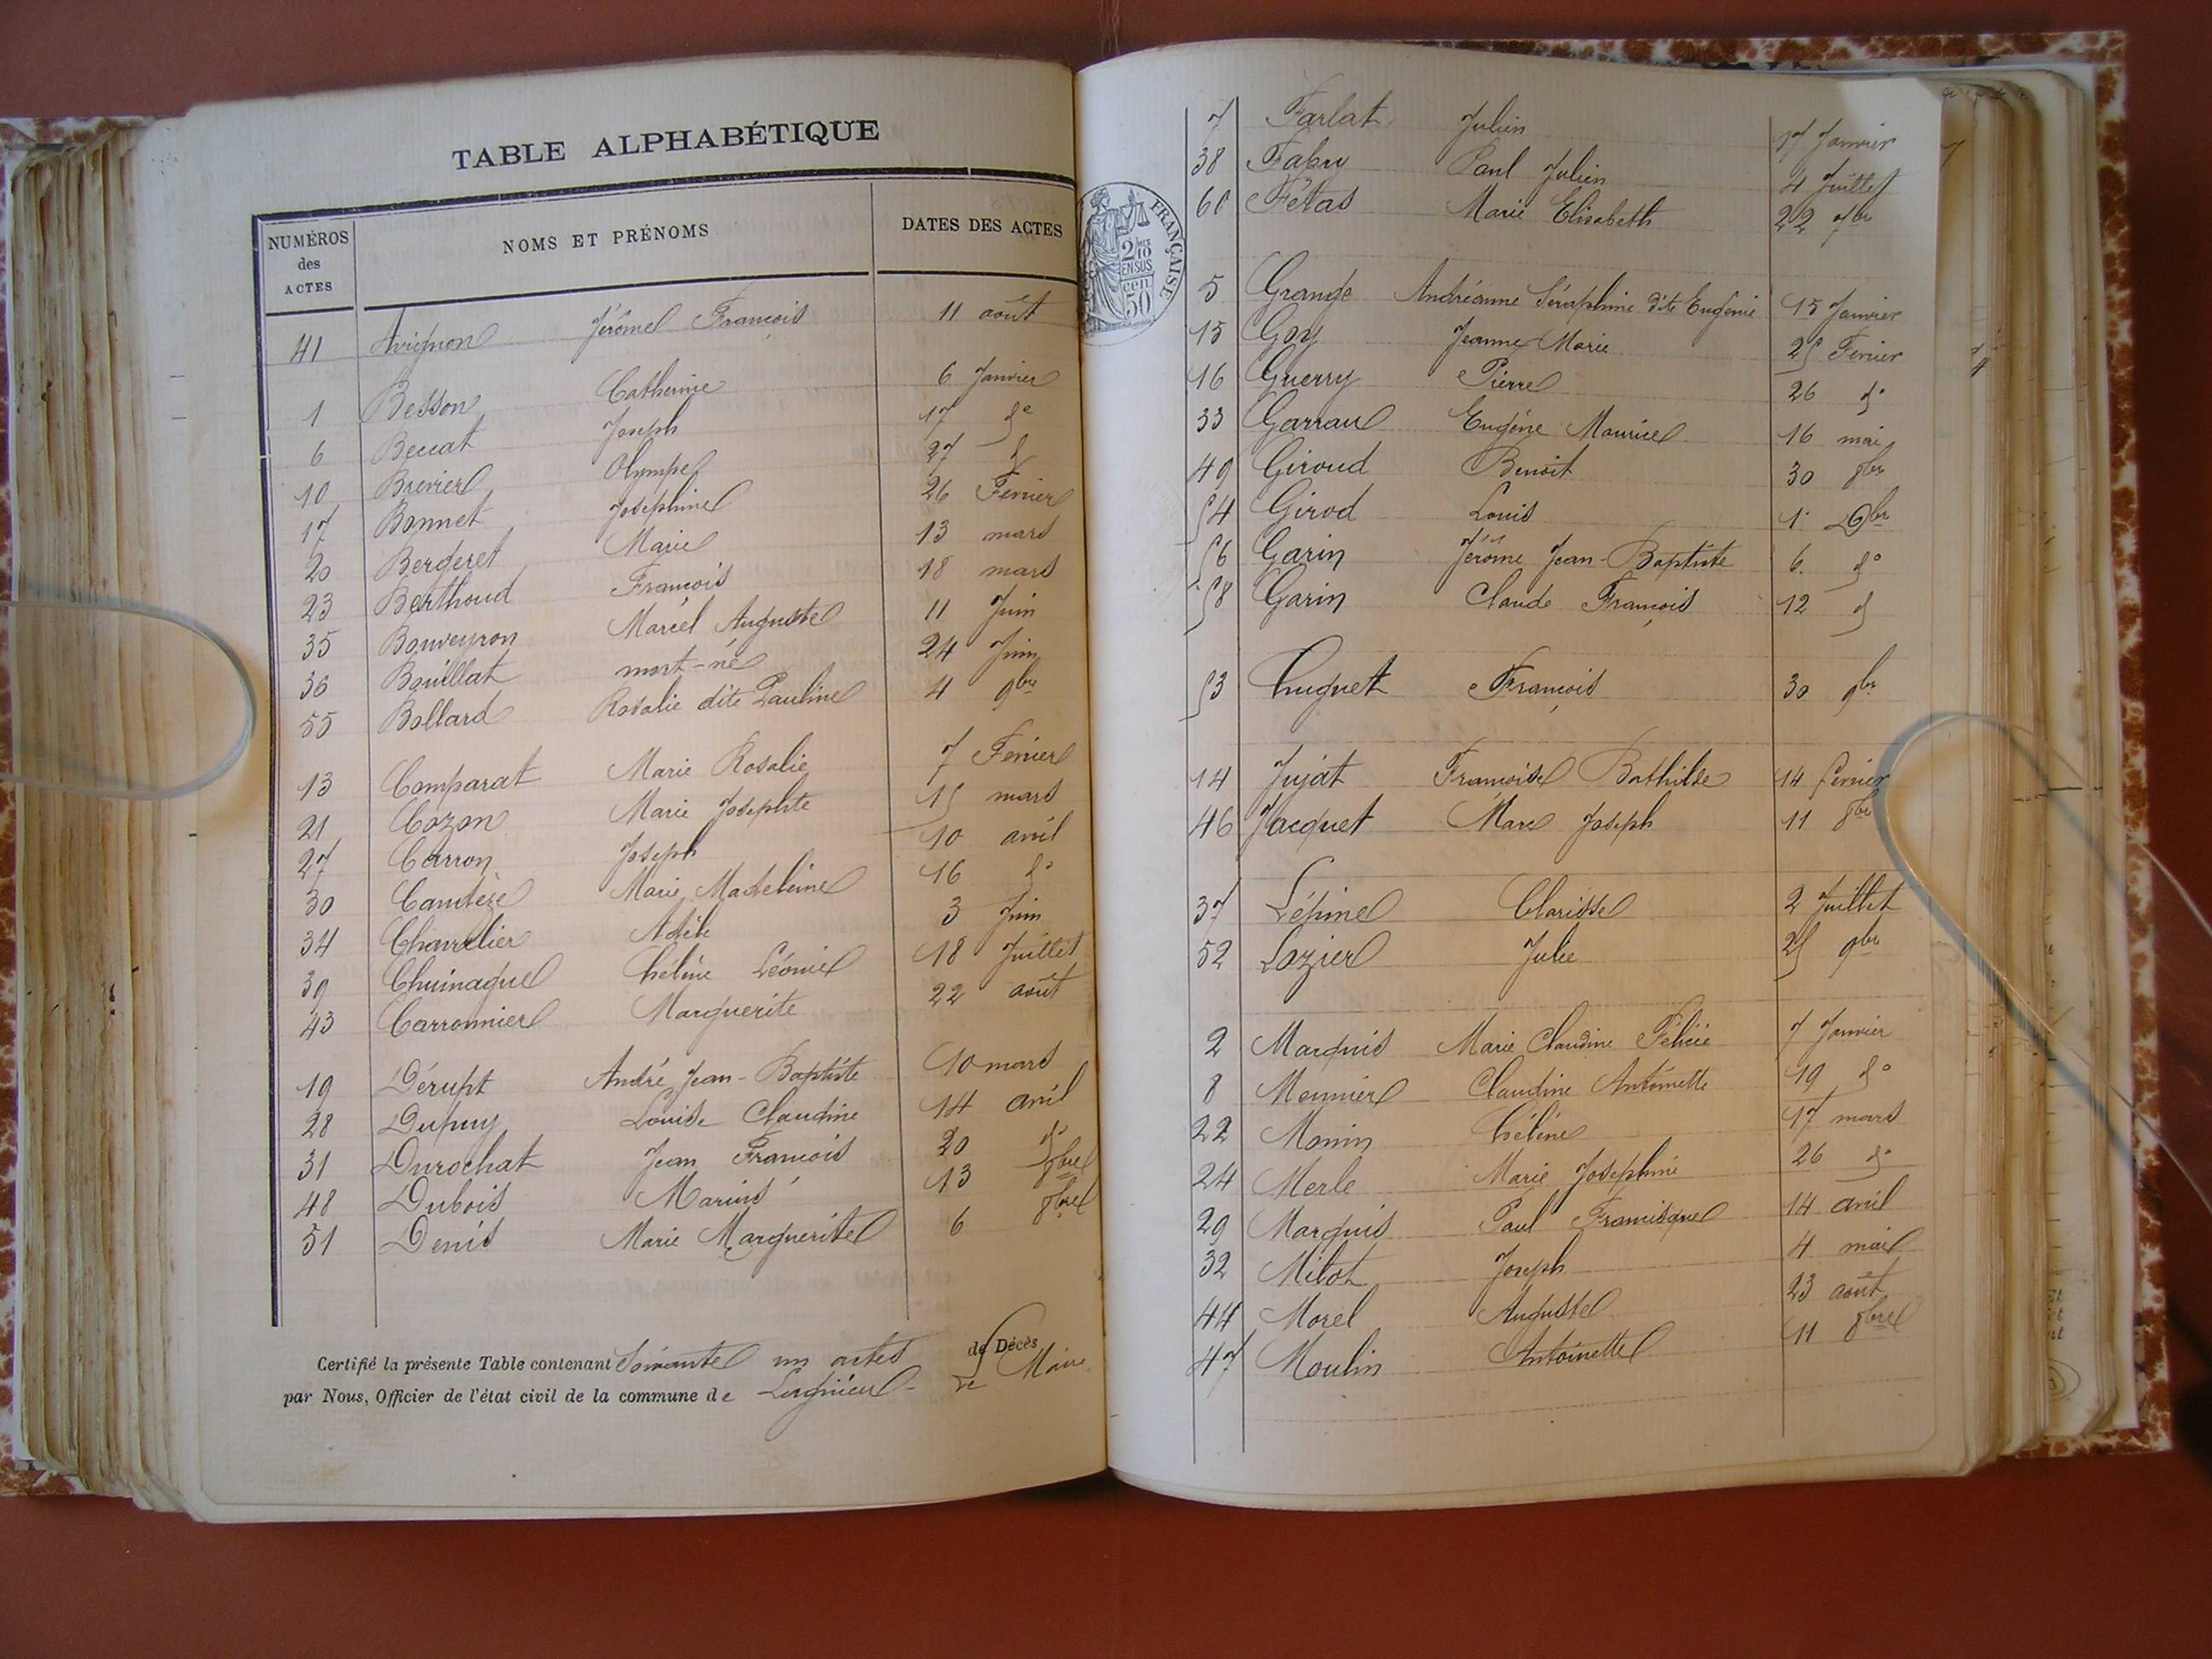 TABLE ALPHABÉTIQUE
NUMÉROS des ACTES NOMS ET PRÉNOMS DATES DES ACTES
41 Avignon Jérôme François 11 août
1 Besson Catherine 6 Janvier
6 Beccat Joseph 17 do
10 Brevier Olympe 27 d
17 Bonnet Joséphine 26 Fevrier
20 Bergeret Marie 13 mars
23 Berthoud François 18 mars
35 Bouveyron Marcel Auguste 11 Juin
36 Bouillat mort-né 24 Juin
55 Bollard Rosalie dite Pauline 4 9bre
13 Comparat Marie Rosalie 7 Fevrier
21 Cozon Marie Josephte 15 mars
27 Carron Joseph 10 avril
30 Caudèze Marie Madeleine 16 do
34 Chavelier Adèle 3 Juin
39 Chuinague Hélène Léonie 18 Juillet
43 Carronnier Marguerite 22 août
19 Dérupt André Jean-Baptiste 10 mars
28 Dupuy Louise Claudine 14 avril
31 Durochat Jean François 20 do
48 Dubois Marius 13 8bre
51 Denis Marie Marguerite 6 8bre
Certifié la présente Table contenant Soixante un actes de Décès
par Nous, Officier de l'état civil de la commune de Lagnieu Le Maire
FRANÇAISE
2/10 EN SUS
50 cen
7 Farlat Julien 17 Janvier
38 Fabry Paul Julien 4 Juillet
60 Fétas Marie Elisabeth 22
5 Grange Andréanne Séraphine dite Eugénie 15 Janvier
15 Goy Jeanne Marie 25 Fevrier
16 Guerry Pierre 26 do
33 Garraud Eugène Maurice 16 mai
49 Giroud Benoit 30 8bre
54 Girod Louis 1er
56 Garin Jérôme Jean-Baptiste 6 do
58 Garin Claude François 12 d
53 Huguet François 30 9bre
14 Jujat Françoise Bathilde 14 fevrier
46 Jacquet Marc Joseph 11 8bre
37 Lépine Clarisse 2 Juillet
52 Lozier Julie 25 9bre
2 Marquis Marie Claudine Félicie 7 Janvier
8 Meunier Claudine Antoinette 19 do
22 Monin Hélène 17 mars
24 Merle Marie Joséphine 26 do
29 Marquis Paul Francisque 14 avril
32 Milot Joseph 4 mai
44 Morel Auguste 23 août
47 Moulin Antoinette 11 8bre